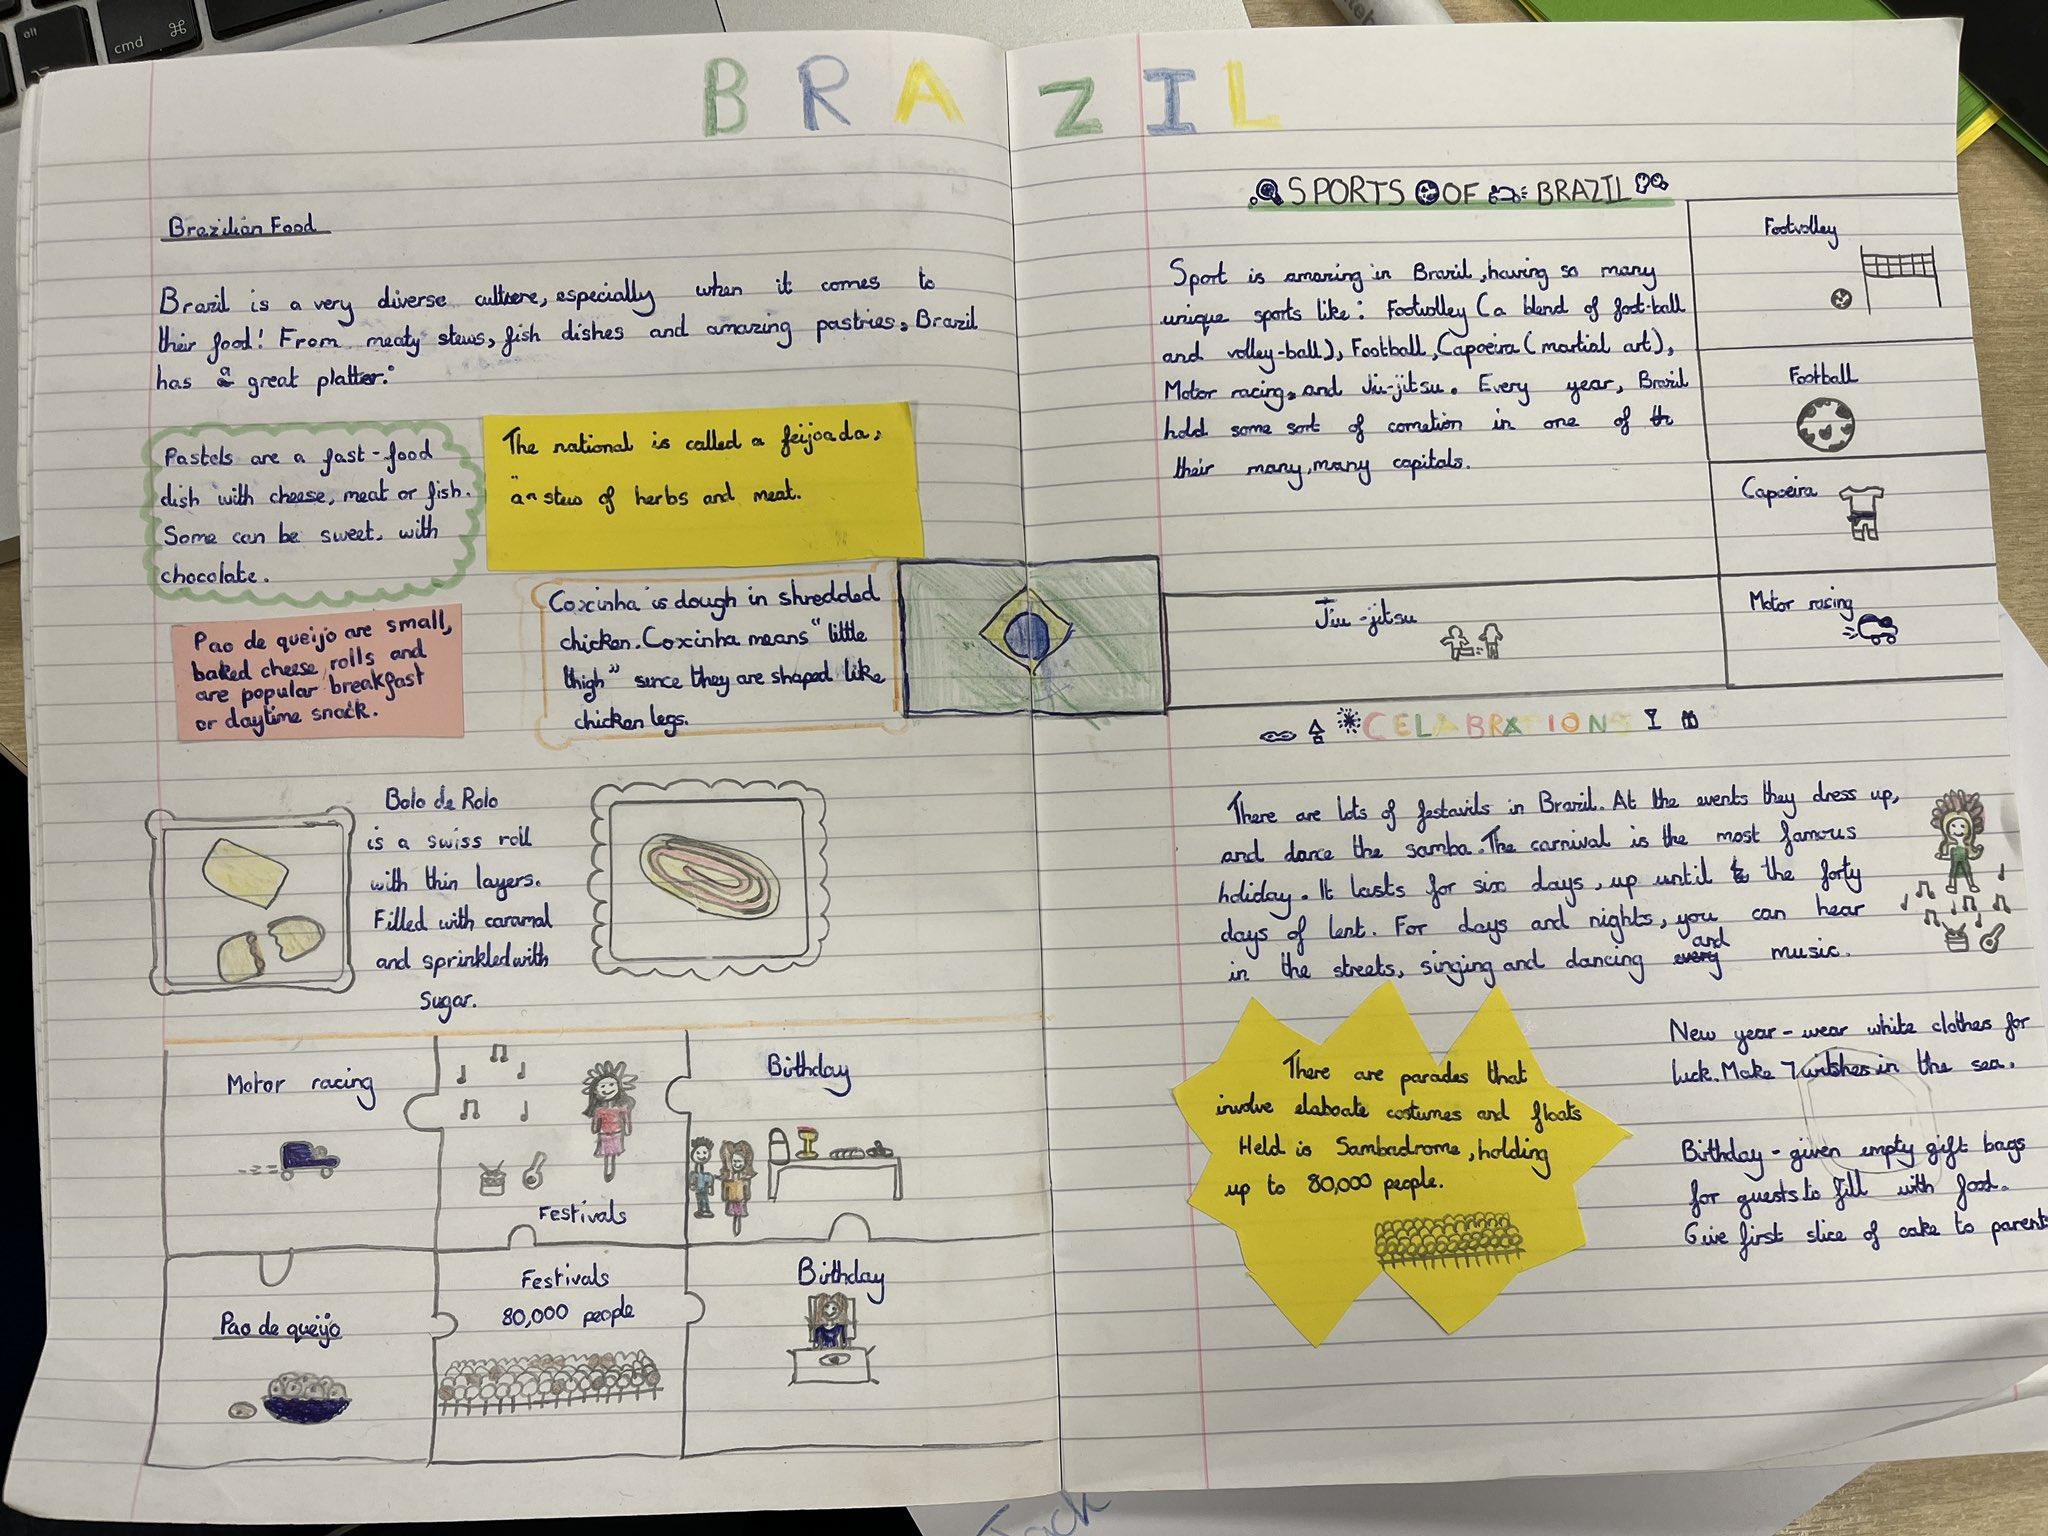 alt
cmd ⌘
BRAZIL
Brazilian Food
Brazil is a very diverse culture, especially when it comes to
their food! From meaty stews, fish dishes and amazing pastries, Brazil
has a great platter.
Pastels are a fast-food
dish with cheese, meat or fish.
Some can be sweet, with
chocolate.
The national is called a feijoada,
an stew of herbs and meat.
Pao de queijo are small,
baked cheese rolls and
are popular breakfast
or daytime snack.
Coxinha is dough in shredded
chicken. Coxinha means "little
thigh" since they are shaped like
chicken legs.
Bolo de Rolo
is a swiss roll
with thin layers.
Filled with caramal
and sprinkled with
Sugar.
Motor racing
Festivals
Birthday
Pao de queijo
Festivals
80,000 people
Birthday
SPORTS OF BRAZIL
Sport is amazing in Brazil, having so many
unique sports like: Footvolley (a blend of foot-ball
and volley-ball), Football, Capoeira (martial art),
Motor racing, and Jiu-jitsu. Every year, Brazil
hold some sort of cometion in one of th
their many, many capitals.
Footvolley
Football
Capoeira
Motor racing
Jiu-jitsu
CELABRATIONS
There are lots of festavils in Brazil. At the events they dress up,
and dance the samba. The carnival is the most famous
holiday. It lasts for six days, up until the forty
days of lent. For days and nights, you can hear
in the streets, singing and dancing and music.
There are parades that
involve elaboate costumes and floats
Held is Sambadrome, holding
up to 80,000 people.
New year - wear white clothes for
luck. Make 7 witshes in the sea.
Birthday - given empty gift bags
for guests to fill with food.
Give first slice of cake to parent
Jack